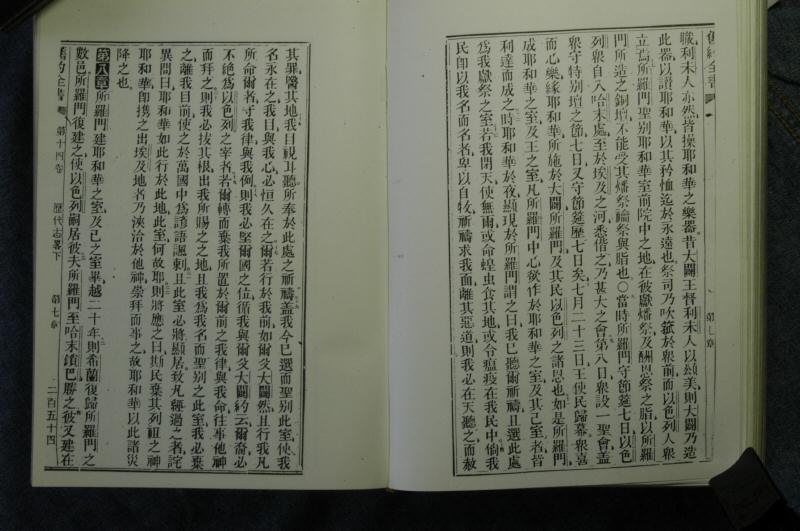 舊約全書
第七章
職利未人亦然皆操耶和華之樂器昔大闢王督利未人以頌美則大闢乃造
此器以讚耶和華以其矜恤迄於永遠也祭司乃吹號於衆前而以色列人衆
立焉所羅門聖別耶和華室前院中之地在彼獻燔祭及酬恩祭之脂以所羅
門所造之銅壇不能受其燔祭禴祭與脂也○當時所羅門守節筵七日以色
列衆自入哈末處至於埃及之河悉偕之乃甚大之會第八日衆設一聖會蓋
衆守特別壇之節七日又守節筵歷七日矣七月二十三日王使民歸幕衆喜
而心樂緣耶和華所施於大闢所羅門及其民以色列之諸恩也如是所羅門
成耶和華之室及王之室凡所羅門中心欲作於耶和華之室及其己室者皆
利達而成之時耶和華於夜顯現於所羅門謂之曰我已聽爾祈禱且選此處
爲我獻祭之室若我閉天使無雨或命蝗虫食其地或令瘟疫在我民中倘我
民卽以我名而名者卑以自牧祈禱求我面離其惡道則我必在天聽之而赦
其罪醫其地我目視耳聽所奉於此處之祈禱蓋我今已選而聖別此室使我
名永在之我目與我心必恒久在之爾若行於我前如爾父大闢然且行我凡
所命爾者守我律與我例則我必堅爾國之位循我與爾父大闢約云爾裔必
不絕爲以色列之宰者若爾轉而棄我所置於爾前之我律與我命往事他神
而拜之則我必拔其根出我所賜之之地且我爲我名而聖別之此室我必棄
之離我目前使之於萬國中爲諺語諷剌且此室必將顯居敖凡經過之者詫
異問曰耶和華如此行於此地此室何故耶則將應之曰斯民棄其列祖之神
耶和華卽携之出埃及地者乃浹洽於他神崇拜而事之故耶和華以此諸災
降之也
第八章所羅門建耶和華之室及己之室畢越二十年則希蘭復歸所羅門之
數邑所羅門復建之使以色列嗣居彼夫所羅門至哈末鎖巴勝之彼又建在
舊約全書
第十四卷
歷代志畧下
第七章
二百五十四